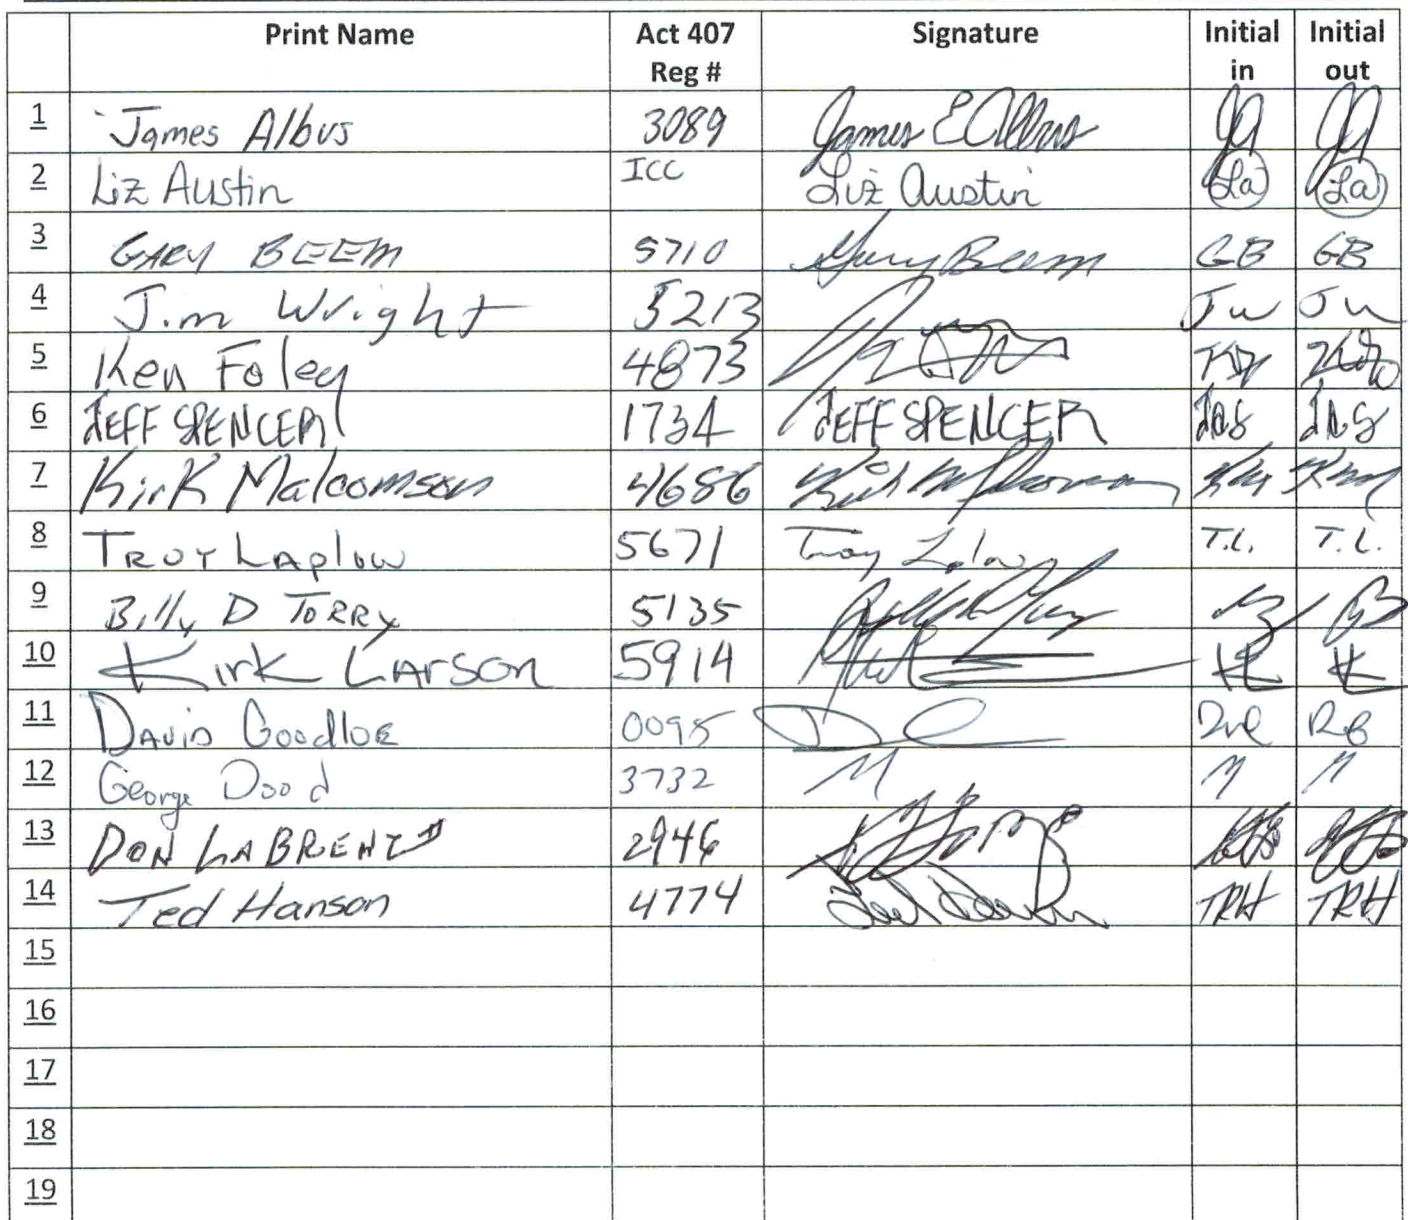 Print Name Act 407 Reg # Signature Initial in Initial out
1 James Albus 3089 James E Albus JA JA
2 Liz Austin ICC Liz Austin La La
3 GARY BEEM 5710 Gary Beem GB GB
4 Jim Wright 5213 JW JW
5 Ken Foley 4873
6 JEFF SPENCER 1734 JEFF SPENCER JAS JAS
7 Kirk Malcomson 4686
8 TROY LAplow 5671 Troy T.L. T.L.
9 Billy D TORRY 5135
10 Kirk LArson 5914
11 DAVID GoodloE 0095
12 George Dood 3732
13 DON LABRENZ 2946
14 Ted Hanson 4774 TRH TRH
15
16
17
18
19